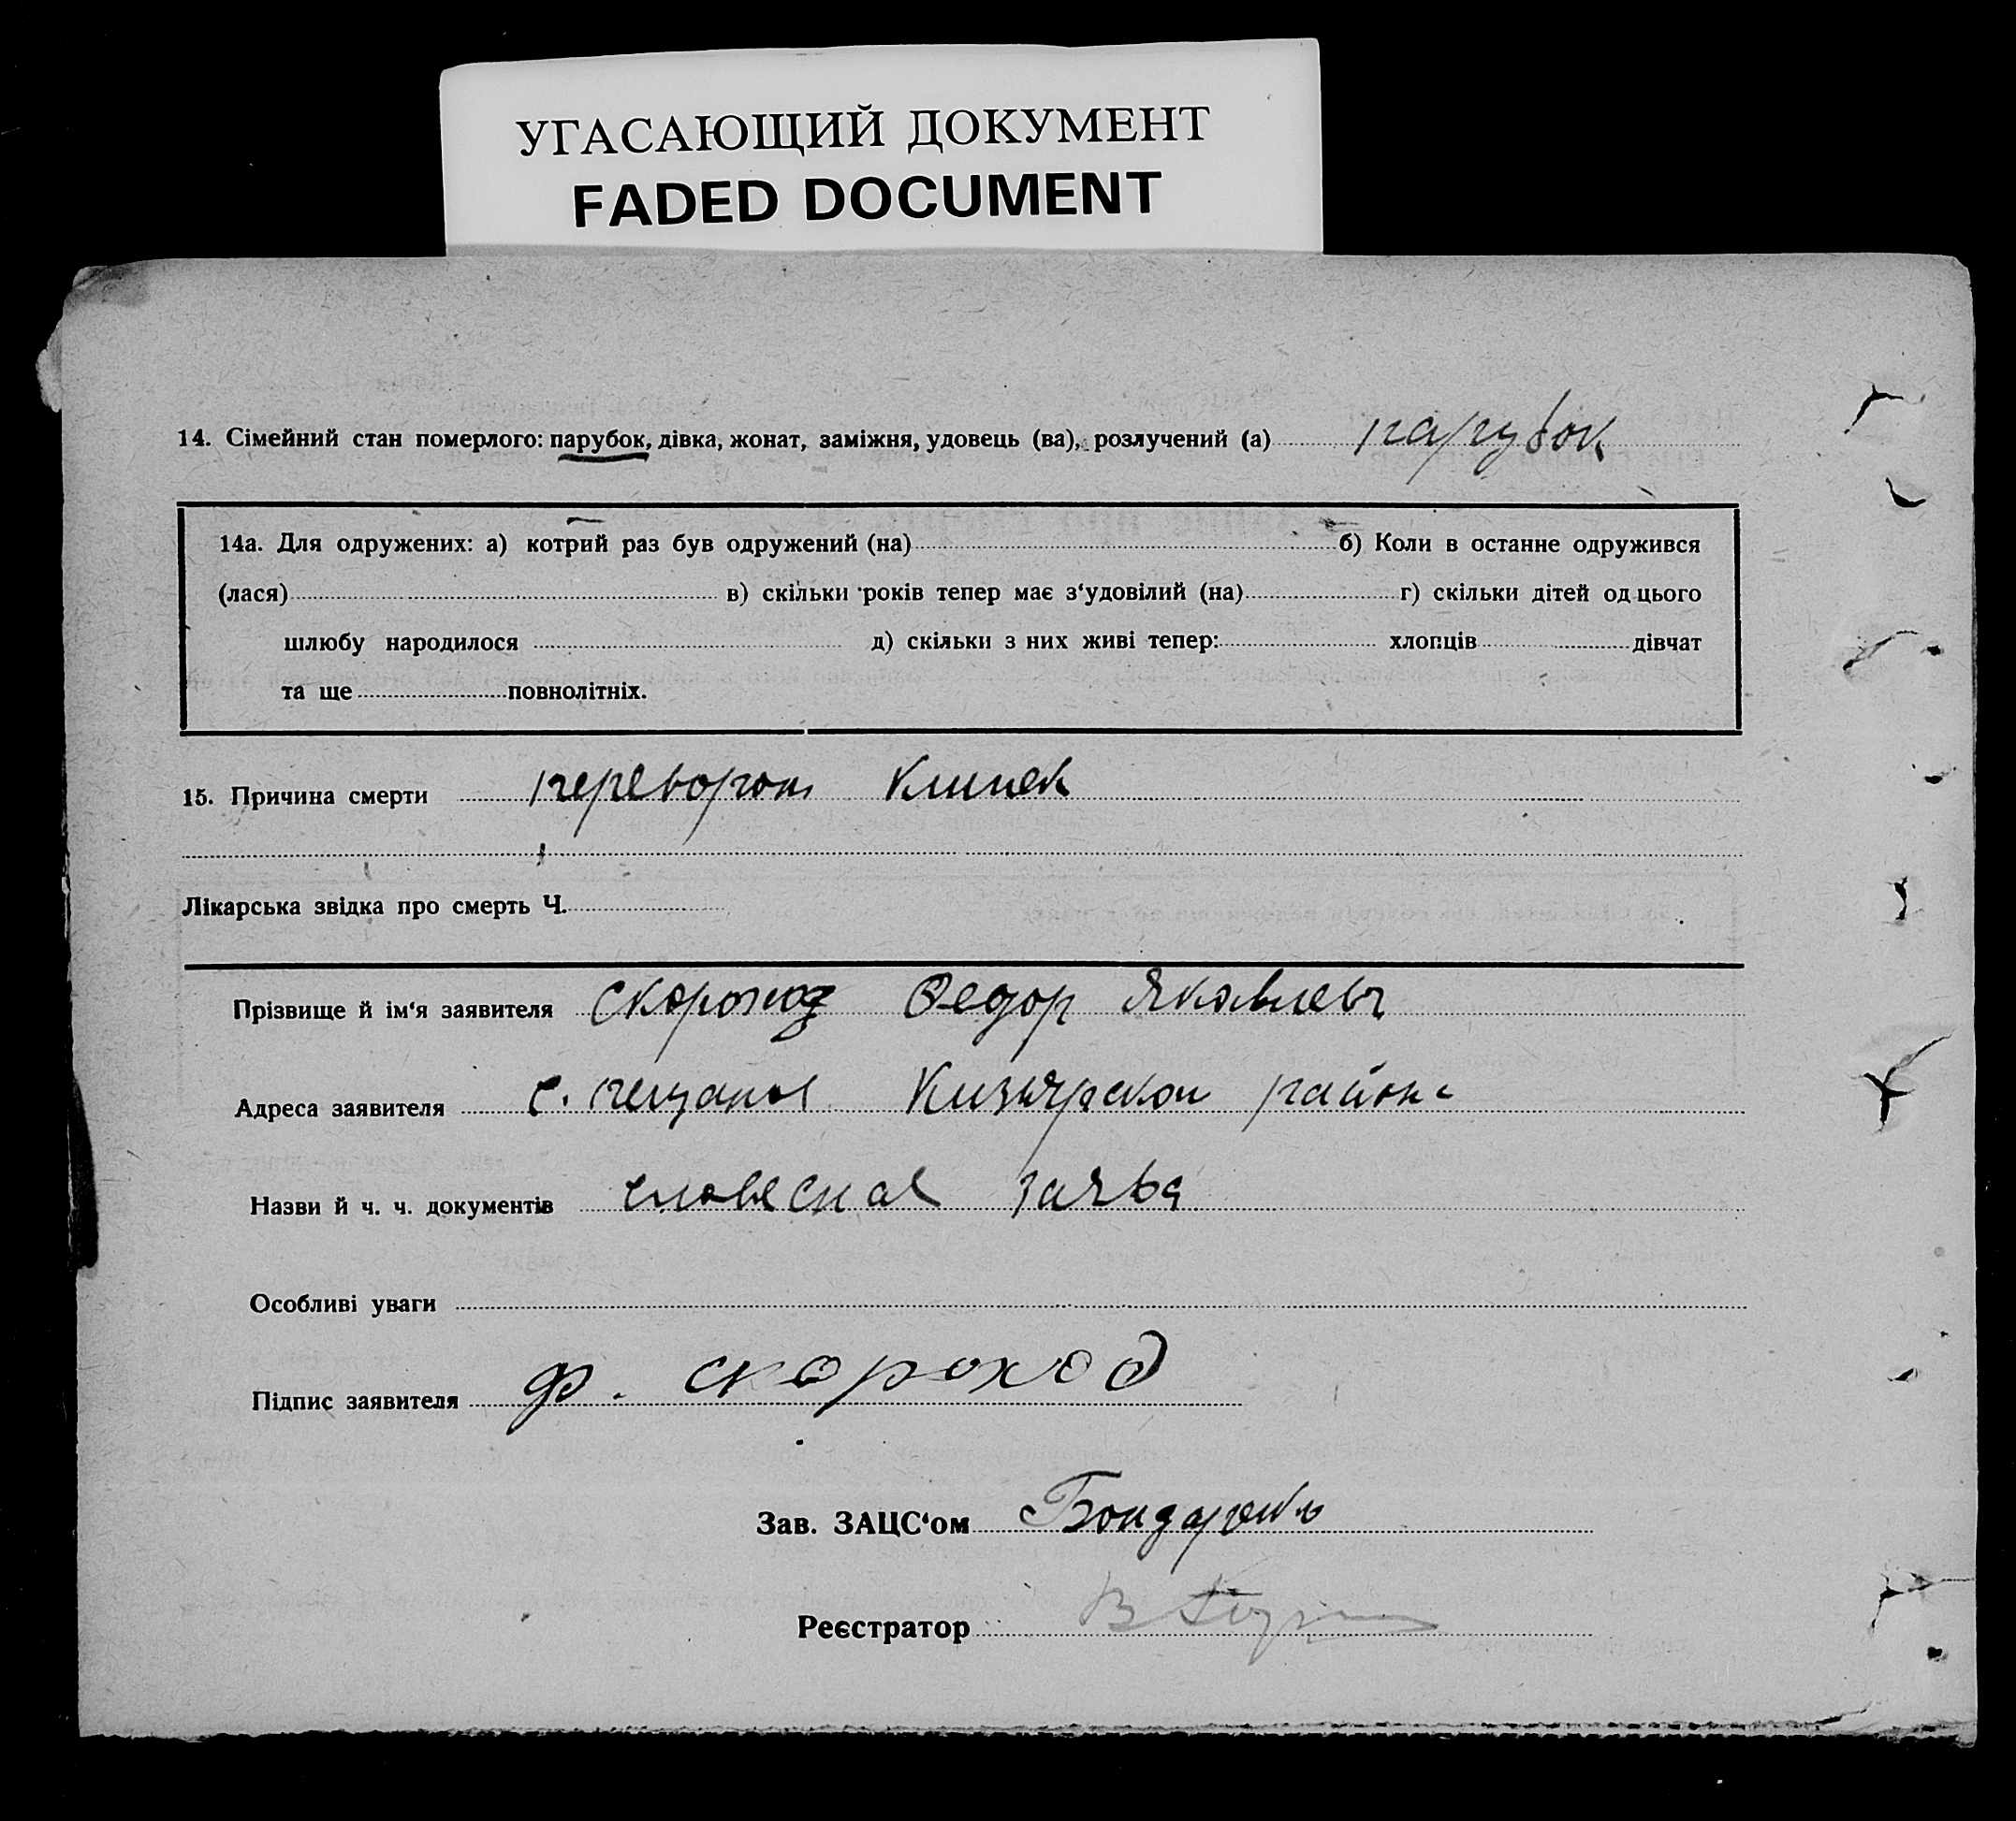 УГАСАЮЩИЙ ДОКУМЕНТ
FADED DOCUMENT
14. Сімейний стан померлого: парубок, дівка, жонат, заміжня, удовець (ва), розлучений (а) парубок
14а. Для одружених: а) котрий раз був одружений (на) б) Коли в останнє одружився
(лася) в) скільки років тепер має з‘удовілий (на) г) скільки дітей од цього
шлюбу народилося д) скільки з них живі тепер: хлопців дівчат
та ще повнолітніх.
15. Причина смерти переворот кишек
Лікарська звідка про смерть Ч.
Прізвище й ім‘я заявителя Скороход Федор Яковлевич
Адреса заявителя с. района
Назви й ч. ч. документів словесная заява
Особливі уваги
Підпис заявителя Ф. Скороход
Зав. ЗАЦС‘ом Бондаренко
Реєстратор В